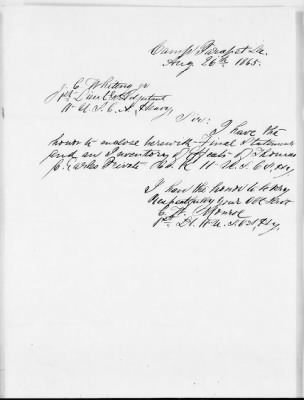 Camp Parapet La.
Aug 26th 1865.
J. C. Whiting jr
1st Lieut & Adjutant
11th U.S.C.A. Heavy
Sir:
I have the
honor to enclose herewith Final Statements
and an Inventory of Effects of Thomas
C. Private Co. K 11 U.S.C.A. Hy
I have the honor to be very
respectfully your Obt Servt
Monroe
1st Lt. 11th U.S.C.A. Hy.